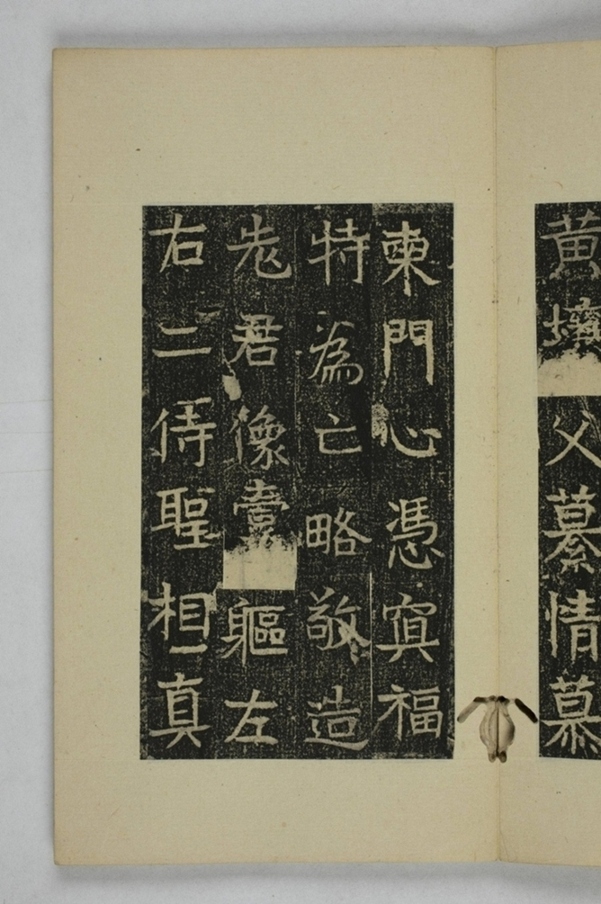 黄壤父情慕
東門心憑冥福
特為亡略敬造
老君像壹軀左
右二侍聖相真